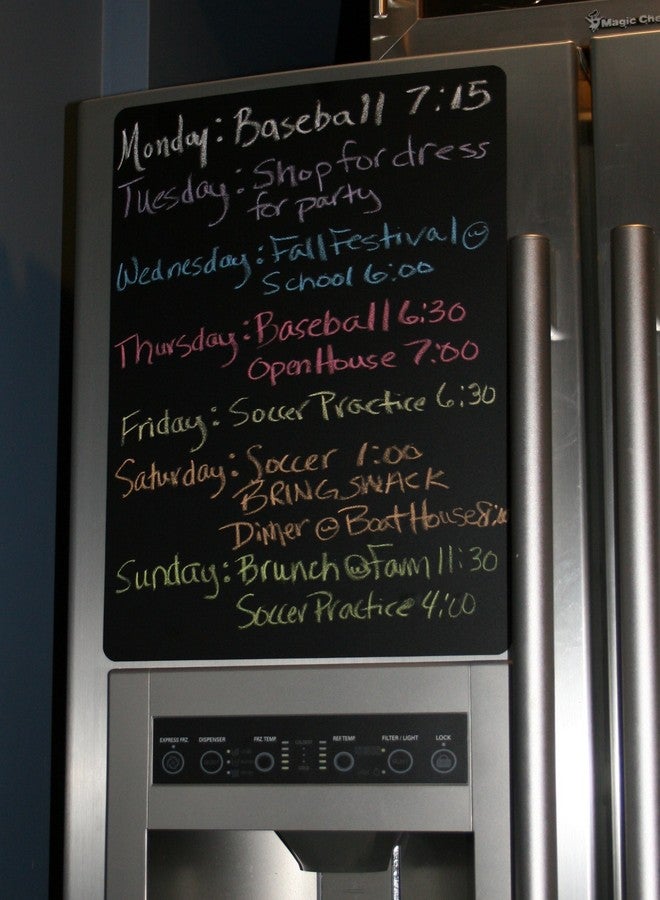 Magic Che
Monday: Baseball 7:15
Tuesday: Shop for dress
for party
Wednesday: Fall Festival @
School 6:00
Thursday: Baseball 6:30
Open House 7:00
Friday: Soccer Practice 6:30
Saturday: Soccer 1:00
BRING SNACK
Dinner @ Boat House 8:00
Sunday: Brunch @ Farm 11:30
Soccer Practice 4:00
EXPRESS FRZ. DISPENSER FRZ TEMP. REF TEMP. FILTER / LIGHT LOCK